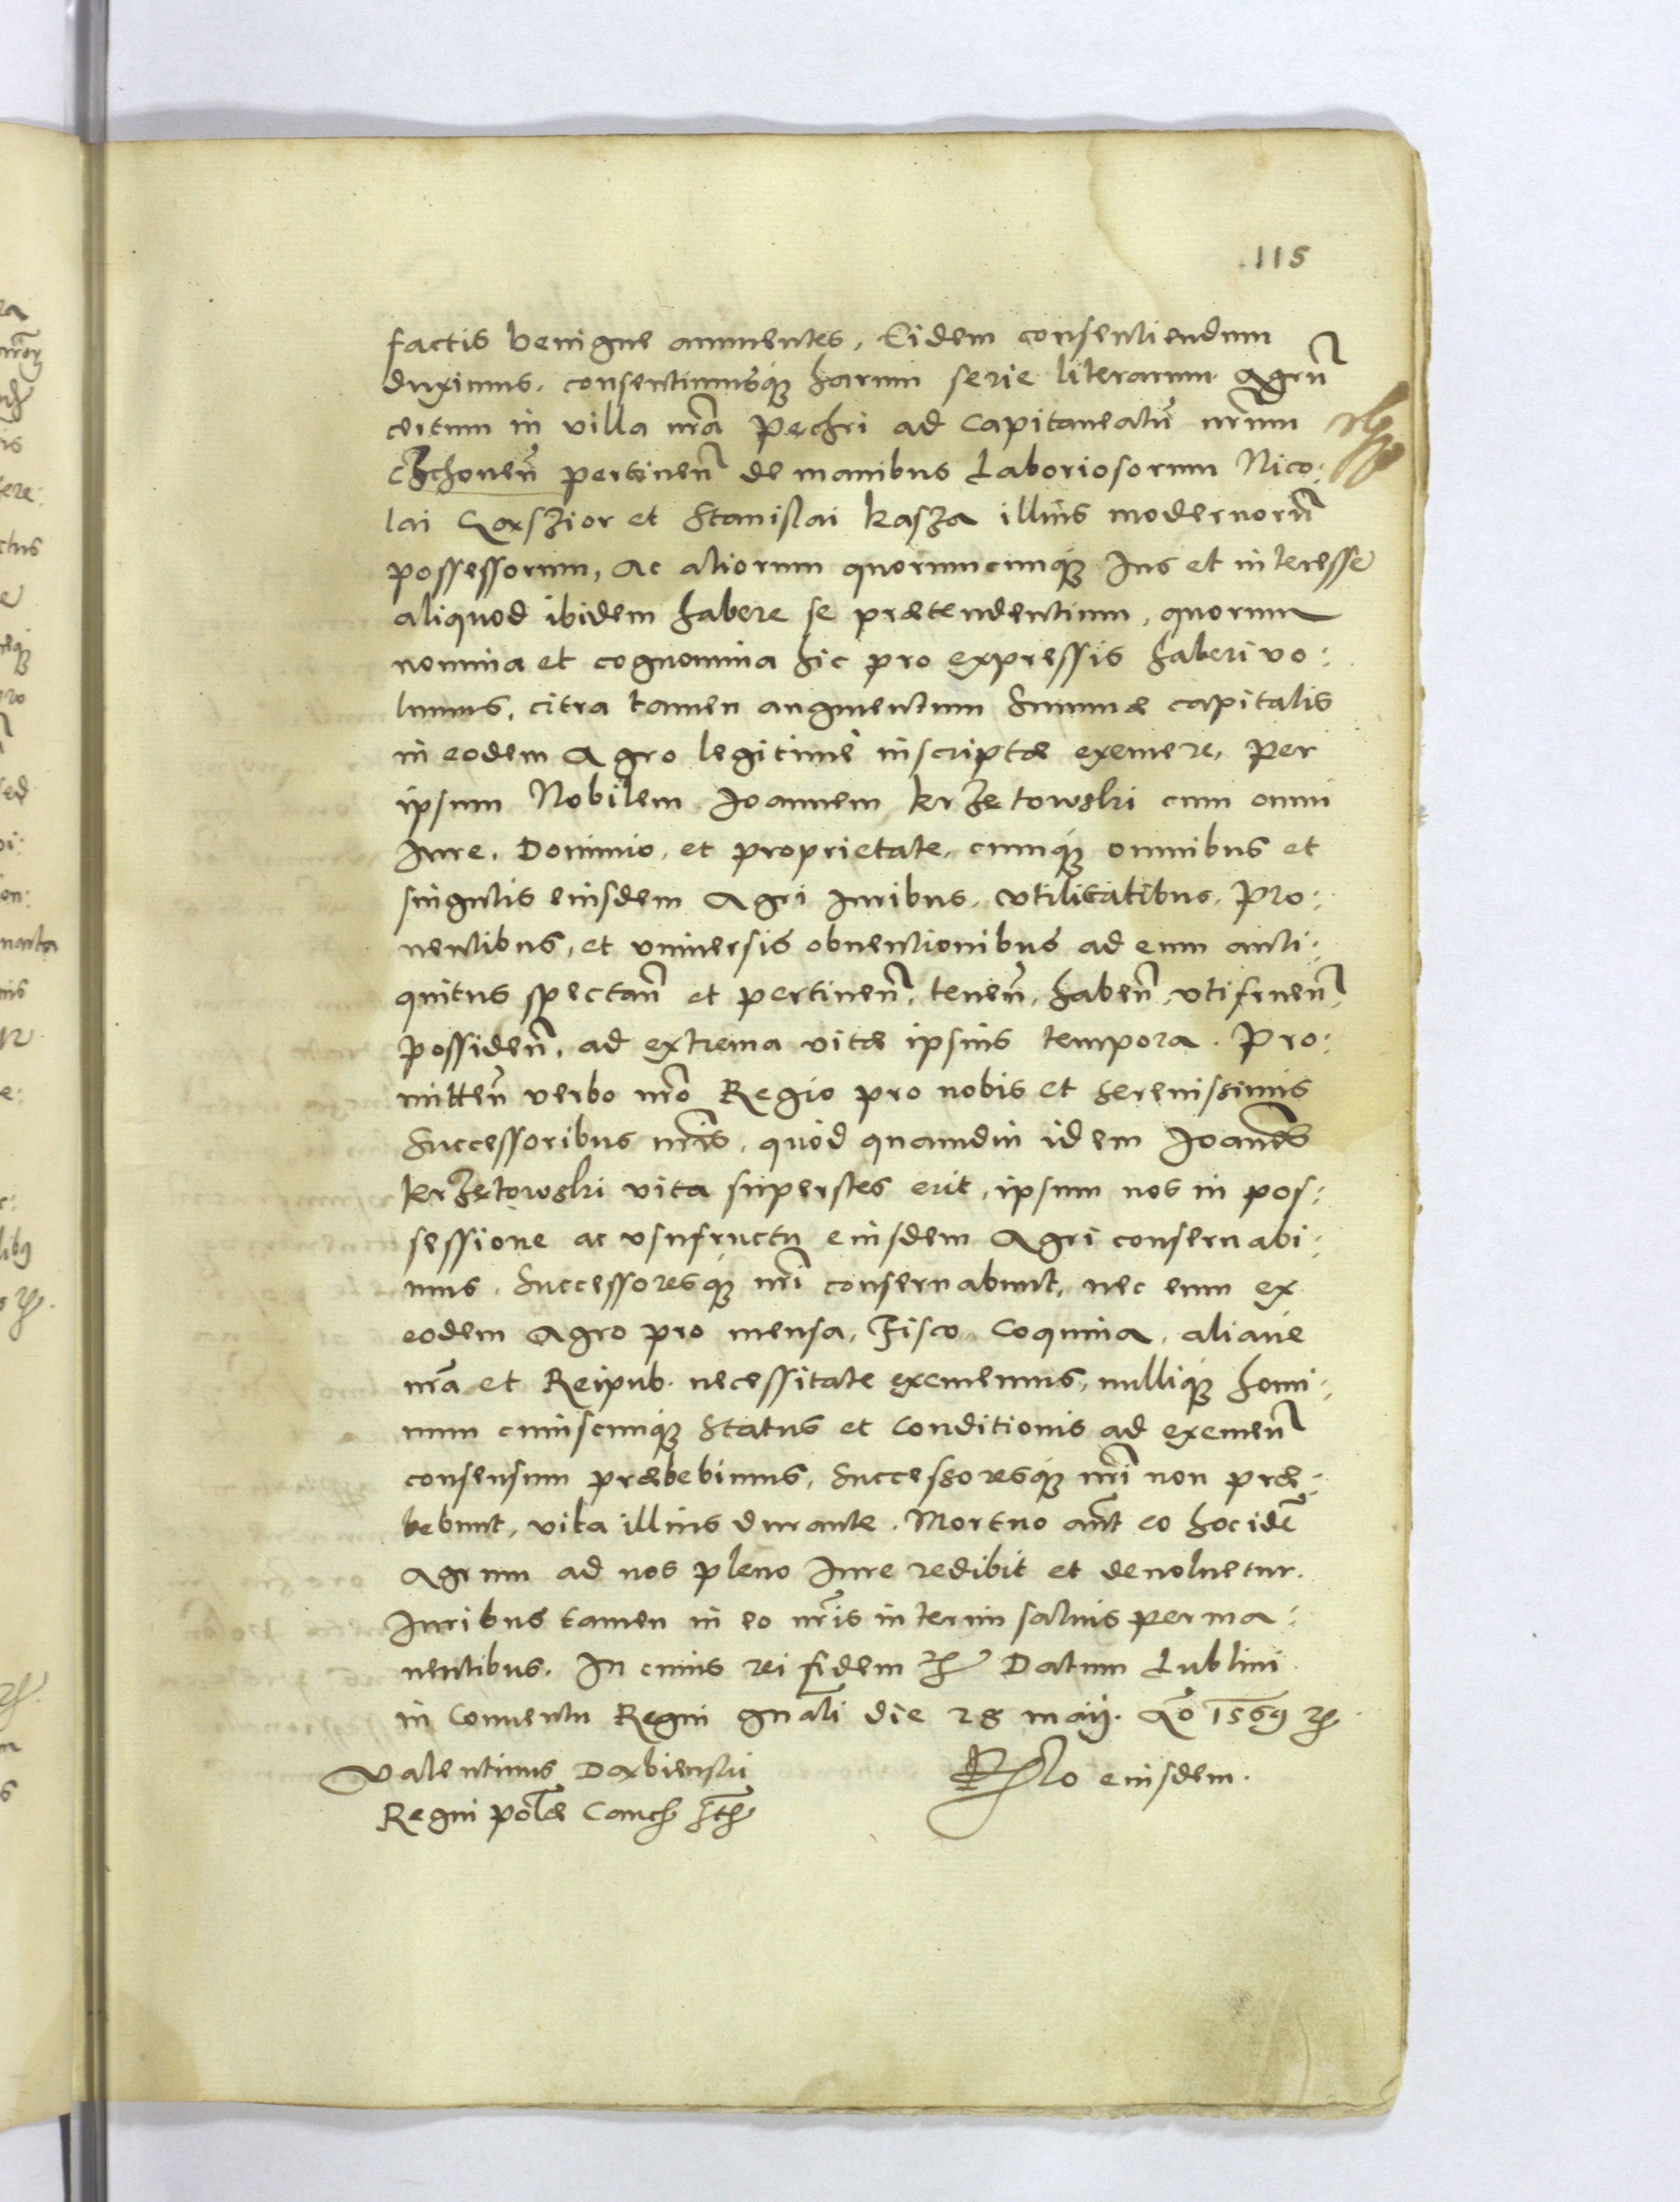 115
factis benigne annuentes, Eidem consentiendum
duximus. consentimusq́ harum serie literarum agrū
certum in villa nr̃a Pęchri ad Capitaneatū nr̃um
pertineñ de manibus Laboriosorum Nico:
lai Gąszior et Stanislai Kasza illius modernorũ
possessorum, ac aliorum quorumcunq́ Ius et interesse
aliquod ibidem habere se prætendentium, quorum
nomina et cognomina hic pro expressis haberi vo:
lumus, citra tamen augmentum Summæ capitalis
in eodem Agro legitimè inscriptæ eximere, per
ipsum Nobilem Ioannem Krzętowski cum omni
Iure, Dominio, et proprietate, cumq́ omnibus et
singulis eiusdem Agri Iuribus, vtilitatibus, Pro:
uentibus, et vniuersis obuentionibus ad eum anti:
quitus spectañ et pertineñ, teneñ, habeñ, vtifrueñ,
possideñ, ad extrema vitæ ipsius tempora. Pro:
mitteñ verbo nr̃o Regio pro nobis et Serenissimis
Successoribus nr̃is, quòd quamdiu idem Ioañes
Krzętowski vita superstes erit, ipsum nos in pos:
sessione ac vsufructu eiusdem Agri conseruabi:
mus. Successoresq́ nr̃i conseruabunt, nec eum ex
eodem Agro pro mensa, Fisco, Coquina, aliaue
nr̃a et Reipub. necessitate eximemus, nulliq́ homi:
num cuiuscunq́ Status et Conditionis ad eximeñ
consensum præbebimus, Successoresq́ nr̃i non præ:
bebunt, vita illius durante. Mortuo aũt eo hoc idē
Agrum ad nos pleno Iure redibit et deuoluetur.
Iuribus tamen in eo nr̃is interim saluis perma:
nentibus. In cuius rei fidem ꝛc̃ Datum Lublini
in Conuentu Regni gñali die 28 maij. Aō 1569 ꝛc̃
Valentinus Dąbienski
Regni Pol̃æ Canc̃
eiusdem.